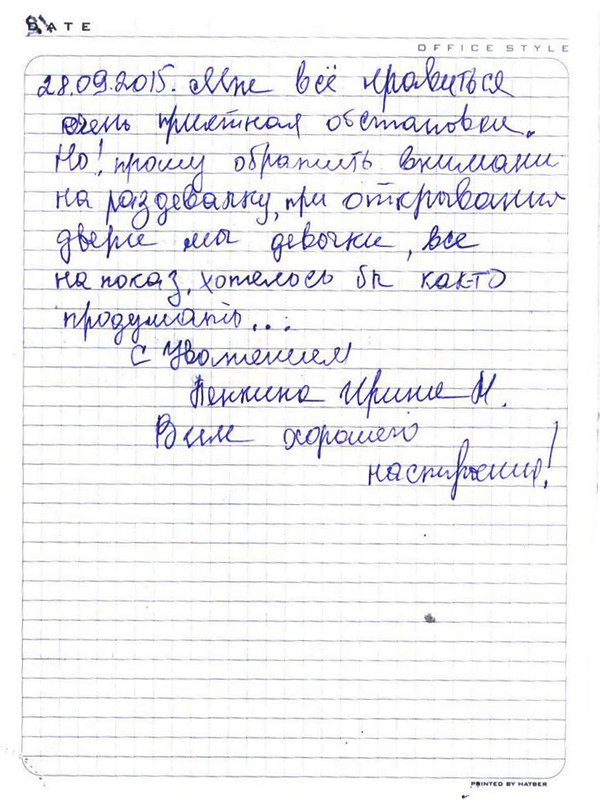 DATE
OFFICE STYLE
28.09.2015. Мне всё нравиться
очень приятная обстановка.
Но! прошу обратить внимани
на раздевалку, при открывании
двери мы девочки, все
на показ, хотелось бы как-то
продумать...
С Уважением
Пенкина Ирина Н.
Вам хорошего
настроения!
PRINTED BY HATBER